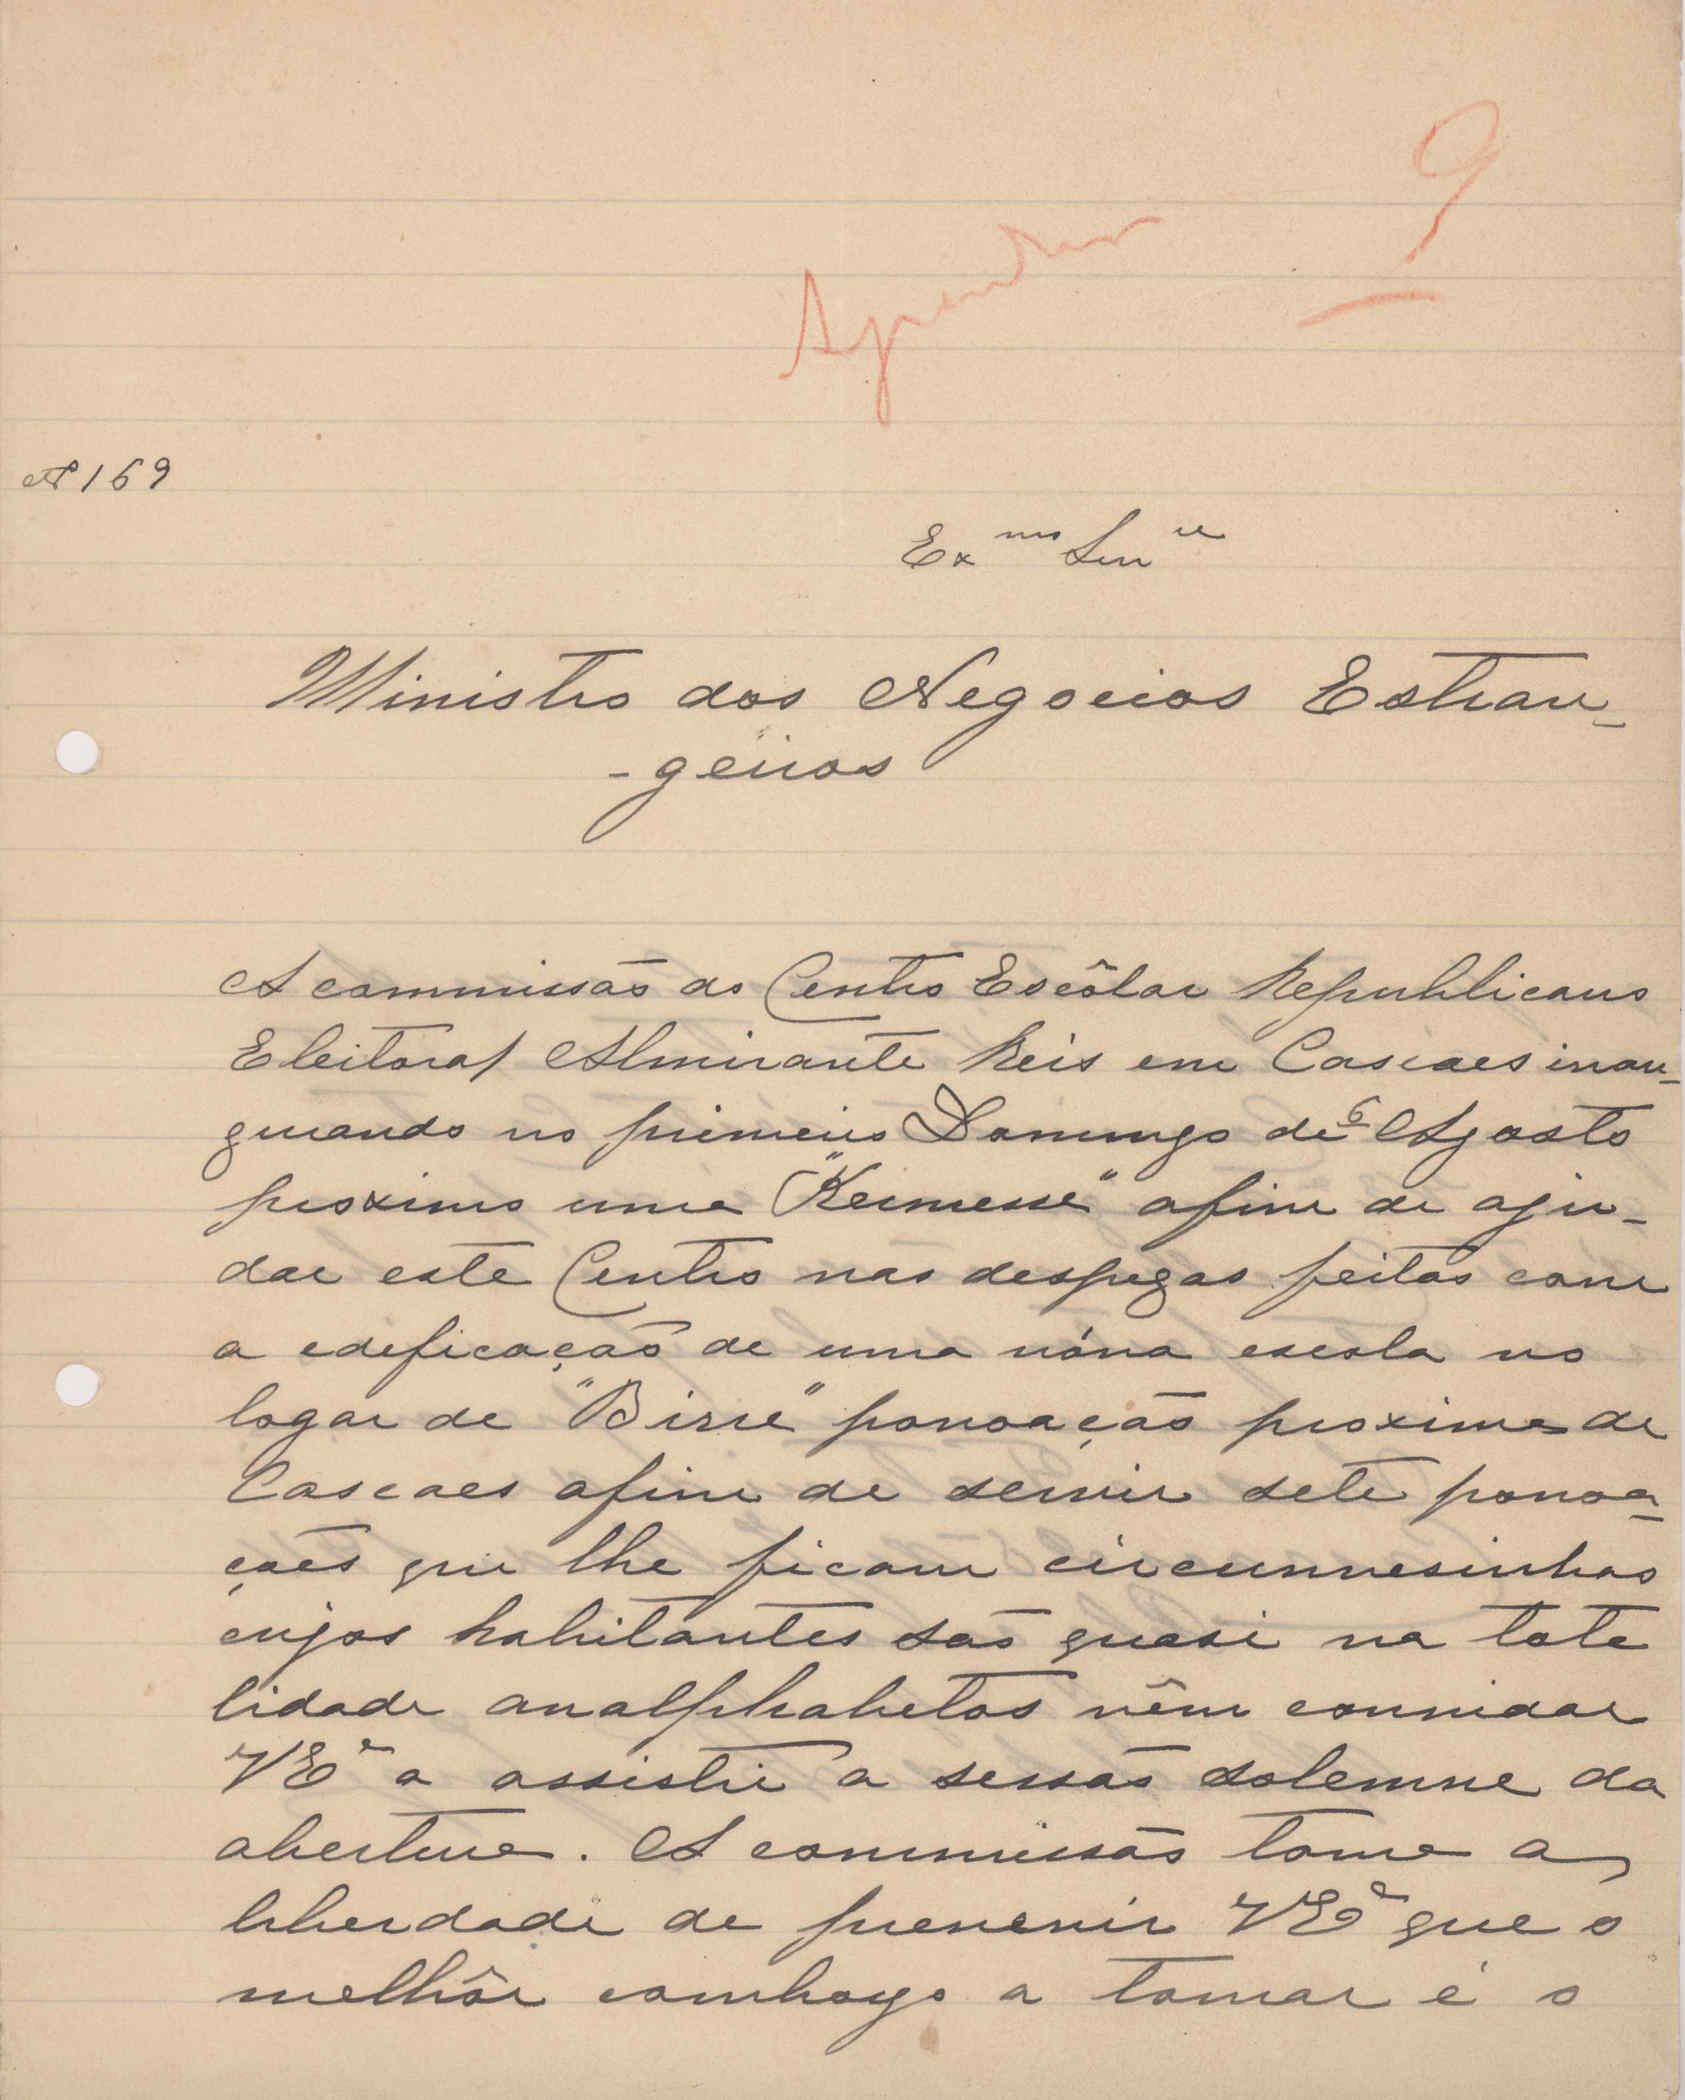 9
Nº 169
Exmo Snr
Ministro dos Negocios Estran-
-geiros
A commissão do Centro Escôlar Republicano
Eleitoral Almirante Reis em Cascaes inau-
gurando no primeiro Domingo de 6 Agosto
proximo uma "Kermesse" afim de aju-
dar este Centro nas despezas feitas com
a edeficação de uma nóva escola no
logar de "Birre" povoação proxima de
Cascaes afim de servir sete povoa-
ções que lhe ficam circumvesinhas
cujos habitantes são quasi na tota
lidade analphabetos vêm convidar
VEª a assistir a sessão solemne da
abertura. A commissão toma a
liberdade de prevenir VEª que o
melhôr comboyo a tomar é o